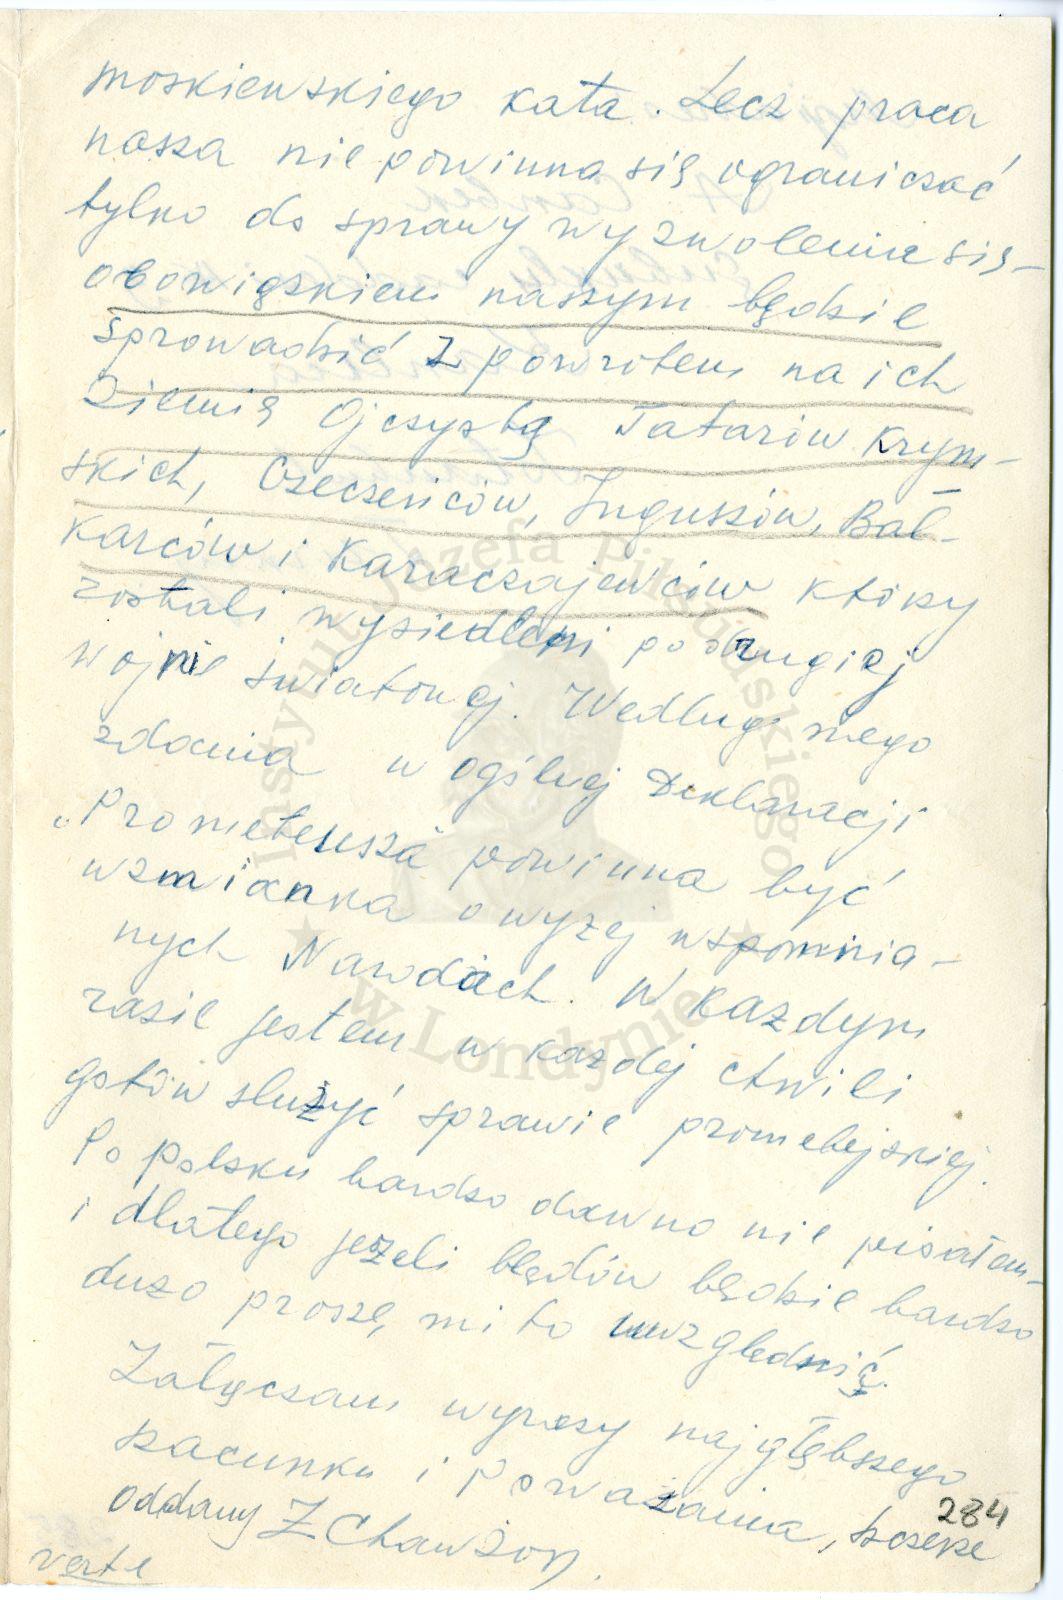 moskiewskiego kata. Lecz praca
nasza nie powinna się ograniczać
tylko do sprawy wyzwolenia się –
obowiązkiem naszym będzie
sprowadzić z powrotem na ich
Ziemię Ojczystą Tatarów Krym-
skich, Czeczeńców, Inguszów, Bał-
karców i Karaczajewców którzy
zostali wysiedleni po drugiej
wojnie światowej. Według mego
zdania w ogólnej Deklaracji
„Prometeusza powinna być
wzmianka o wyżej wspomnia-
nych Narodach. W każdym
razie jestem w każdej chwili
gotów służyć sprawie prometejskiej.
Po polsku bardzo dawno nie pisałem –
i dlatego jeżeli błędów będzie bardzo
dużo proszę, mi to uwzględnić.
Załączam wyrazy najgłębszego
szacunku i poważania, szczerze
oddany Z Chawżon.
verte
284
Instytut Józefa Piłsudskiego
w Londynie